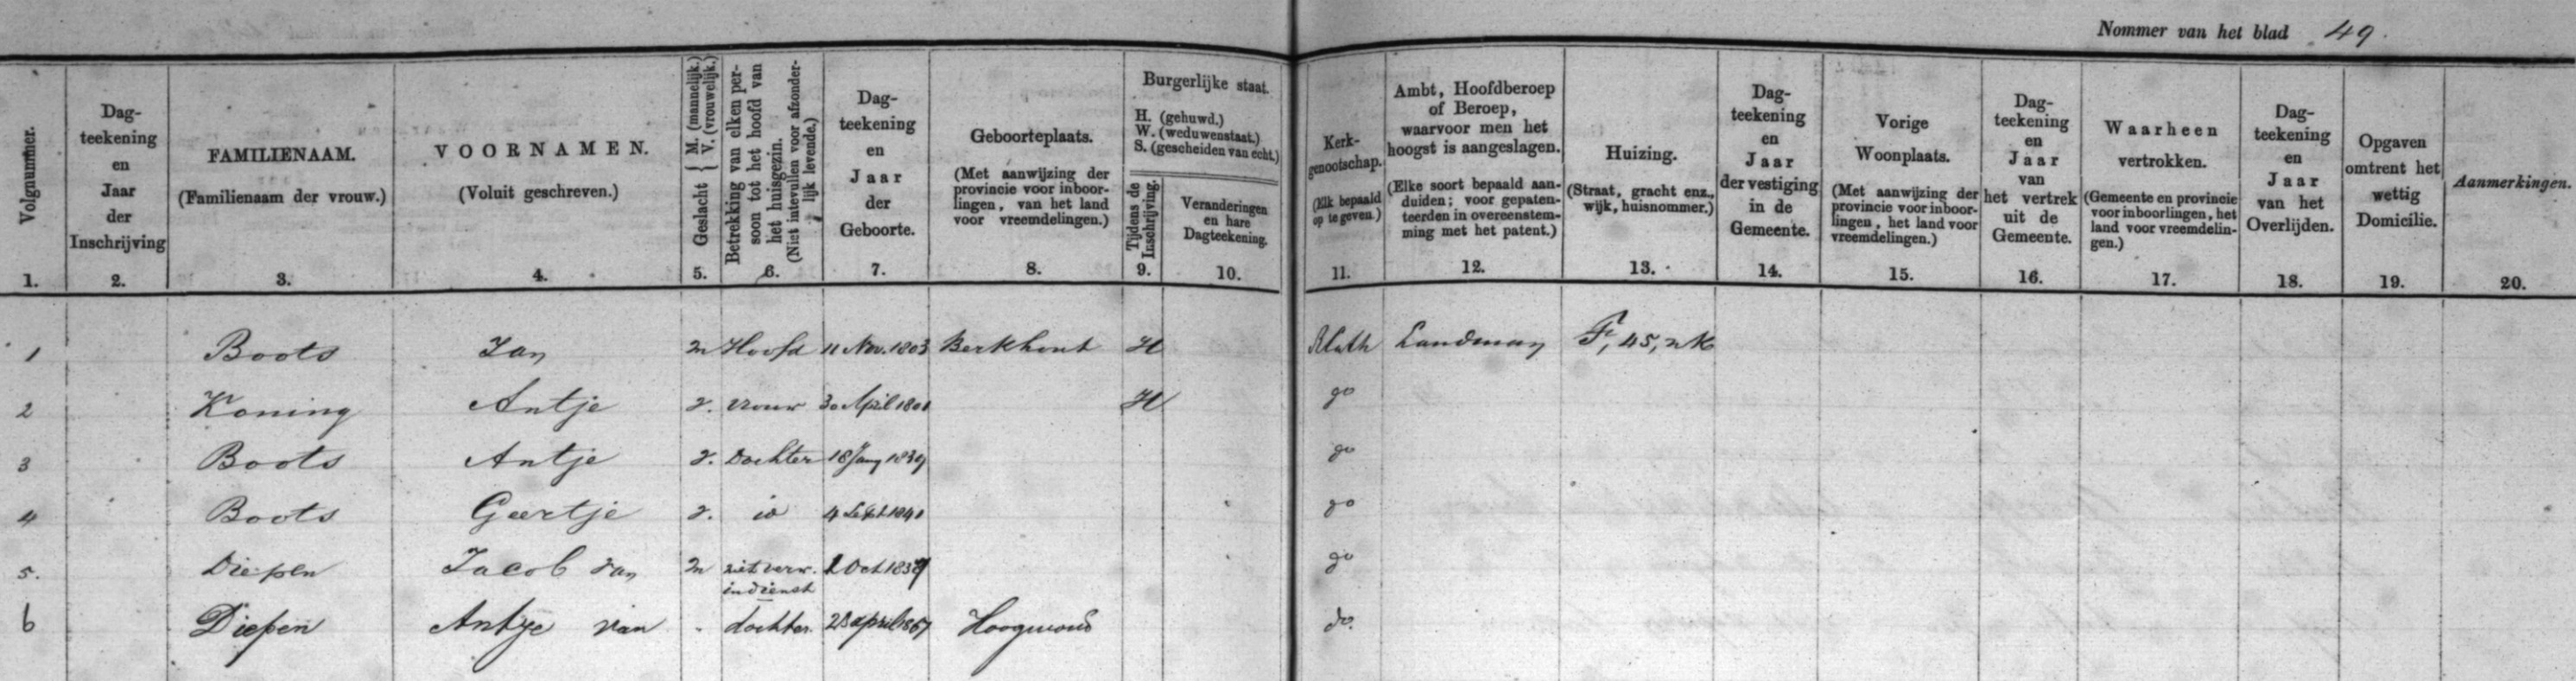 Nommer van het blad 49.
Volgnummer.
1.
Dag-
teekening
en
Jaar
der
Inschrijving
2.
FAMILIENAAM.
(Familienaam der vrouw.)
3.
VOORNAMEN.
(Voluit geschreven.)
4.
Geslacht { M. (mannelijk.) V. (vrouwelijk.)
5.
Betrekking van elken per-
soon tot het hoofd van
het huisgezin.
(Niet intevullen voor afzonder-
lijk levende.)
6.
Dag-
teekening
en
Jaar
der
Geboorte.
7.
Geboorteplaats.
(Met aanwijzing der
provincie voor inboor-
lingen, van het land
voor vreemdelingen.)
8.
Burgerlijke staat.
H. (gehuwd.)
W. (weduwenstaat.)
S. (gescheiden van echt.)
Tijdens de
Inschrijving.
9.
Veranderingen
en hare
Dagteekening.
10.
Kerk-
genootschap.
(Elk bepaald
op te geven.)
11.
Ambt, Hoofdberoep
of Beroep,
waarvoor men het
hoogst is aangeslagen.
(Elke soort bepaald aan-
duiden; voor gepaten-
teerden in overeenstem-
ming met het patent.)
12.
Huizing.
(Straat, gracht enz.,
wijk, huisnommer.)
13.
Dag-
teekening
en
Jaar
der vestiging
in de
Gemeente.
14.
Vorige
Woonplaats.
(Met aanwijzing der
provincie voor inboor-
lingen, het land voor
vreemdelingen.)
15.
Dag-
teekening
en
Jaar
van
het vertrek
uit de
Gemeente.
16.
Waarheen
vertrokken.
(Gemeente en provincie
voor inboorlingen, het
land voor vreemdelin-
gen.)
17.
Dag-
teekening
en
Jaar
van het
Overlijden.
18.
Opgaven
omtrent het
wettig
Domicilie.
19.
Aanmerkingen.
20.
1 Boots Jan m Hoofd 11 Nov. 1803 Berkhout H Rkath Landman F, 45, nK
2 Koning Antje v. vrouw 30 April 1801 H do
3 Boots Antje v. Dochter 18 Jany 1839 do
4 Boots Geertje v. id 4 Sept 1841 do
5. Diepen Jacob van m niet verw. in dienst Oct 1837 do
6 Diepen Antje van - dochter. 28 april 1867 Hoogwoud do.